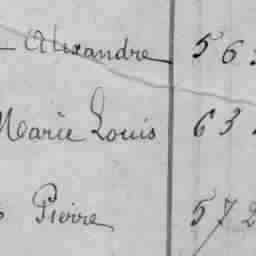 Alexandre 5 6
Marie Louis 6 3
Pierre 5 7 2